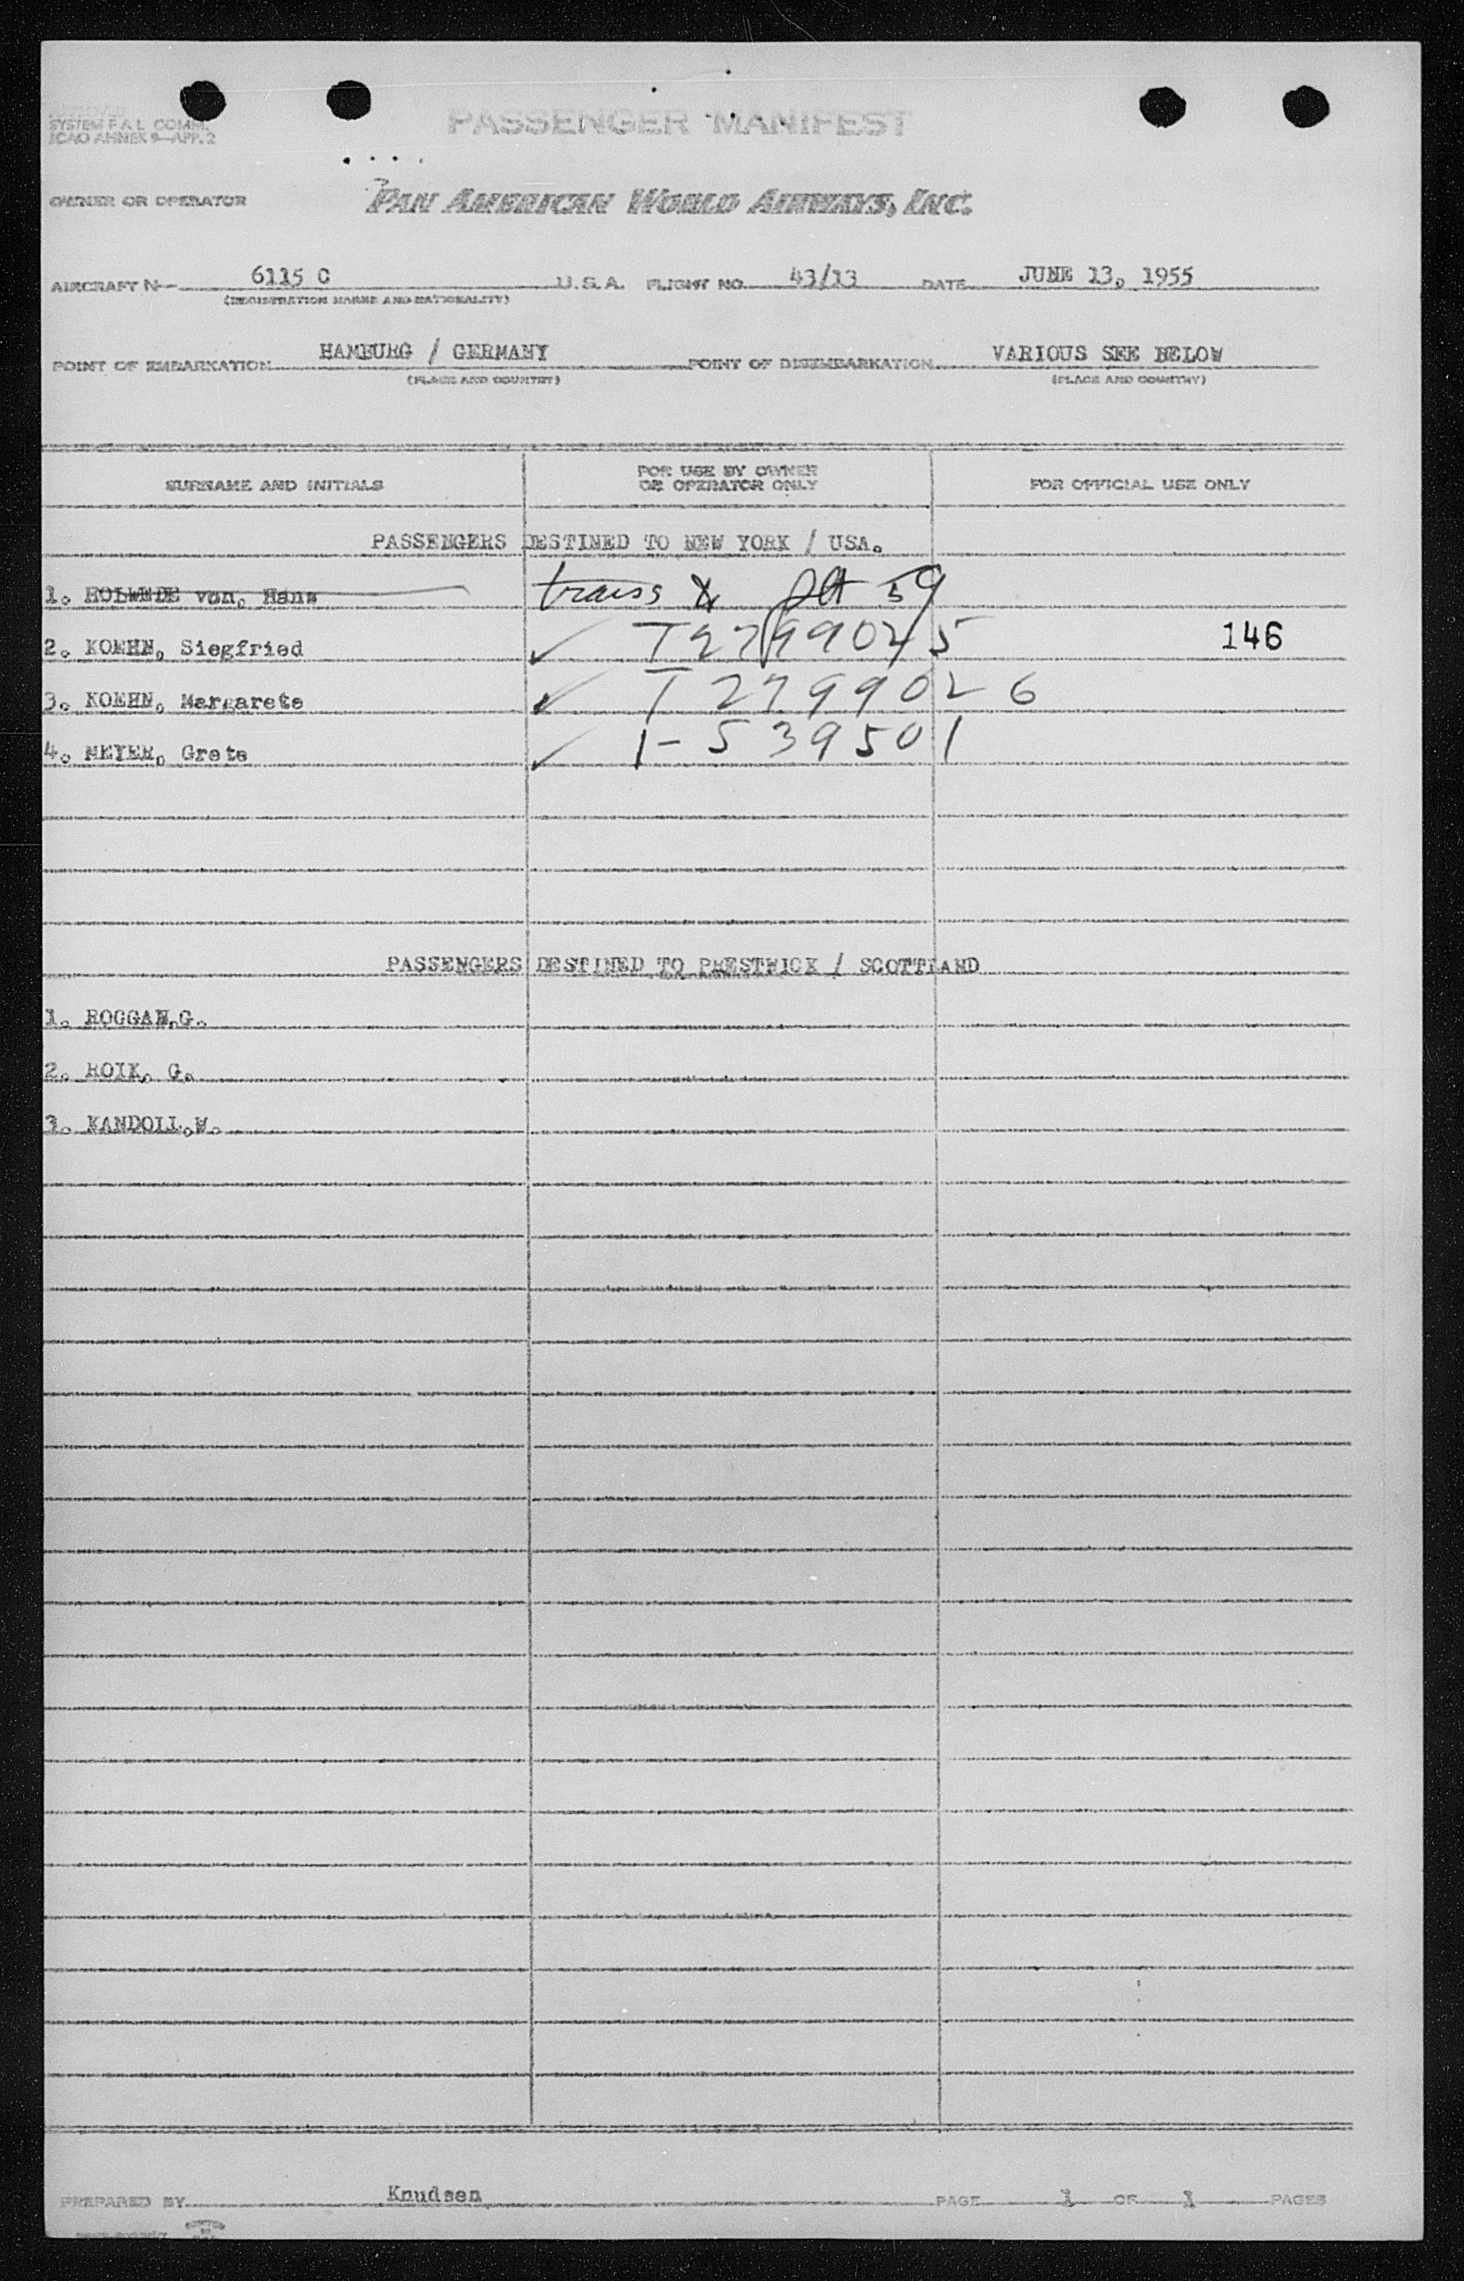 SYSTEM F.A.L. COMM.
ICAO ANNEX 9—APP. 2
PASSENGER MANIFEST
OWNER OR OPERATOR PAN AMERICAN WORLD AIRWAYS, INC.
AIRCRAFT N- 6115 C U.S.A. FLIGHT NO. 43/13 DATE JUNE 13, 1955
(REGISTRATION MARKS AND NATIONALITY)
POINT OF EMBARKATION HAMBURG / GERMANY POINT OF DISEMBARKATION VARIOUS SEE BELOW
(PLACE AND COUNTRY) (PLACE AND COUNTRY)
SURNAME AND INITIALS
FOR USE BY OWNER
OR OPERATOR ONLY
FOR OFFICIAL USE ONLY
PASSENGERS DESTINED TO NEW YORK / USA.
1. HOLWEDE von, Hans trans flt 59
2. KOEHN, Siegfried ✓ T2799025 146
3. KOEHN, Margarete ✓ T2799026
4. MEYER, Grete ✓ I-539501
PASSENGERS DESTINED TO PRESTWICK / SCOTTLAND
1. ROGGAN,G.
2. ROIK, G.
3. KANDOLL,W.
PREPARED BY Knudsen PAGE 1 OF 1 PAGES